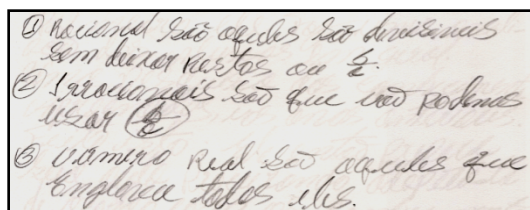 ① Racional são aqueles são divisiveis
sem deixar restos ou b/a.
② Irracionais são que não podemos
usar b/a
③ número Real são aqueles que
Engloba todos eles.